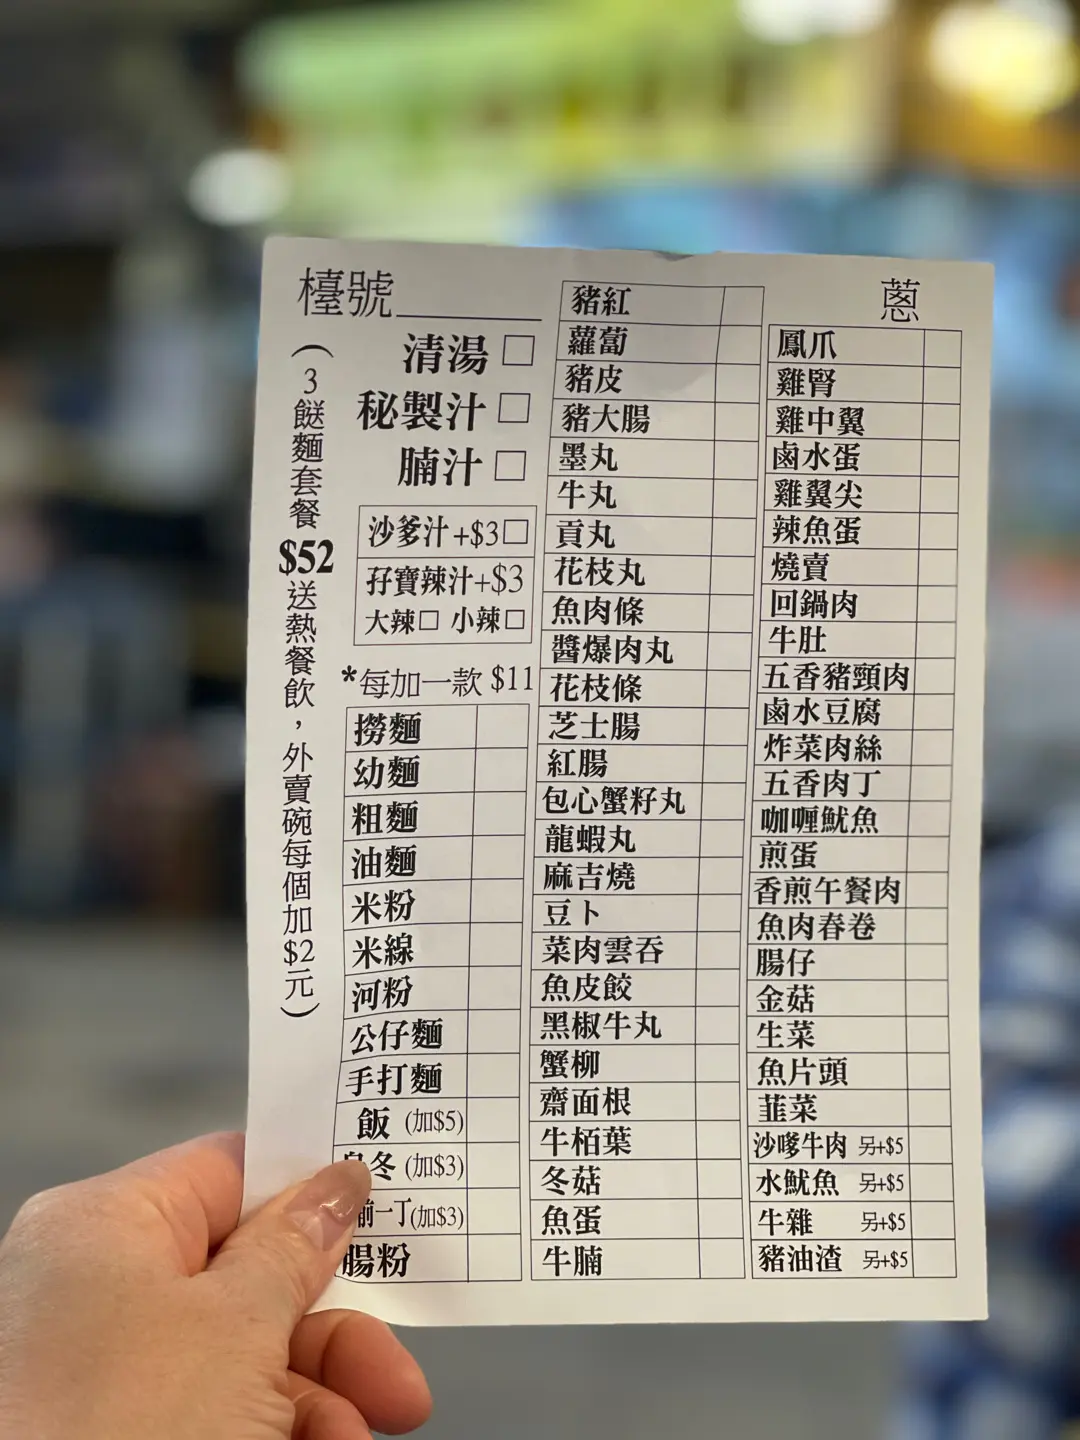 檯號
(3餸麵套餐$52送熱餐飲，外賣碗每個加$2元)
清湯
秘製汁
腩汁
沙爹汁+$3
孖寶辣汁+$3
大辣 小辣
*每加一款 $11
撈麵
幼麵
粗麵
油麵
米粉
米線
河粉
公仔麵
手打麵
飯 (加$5)
冬 (加$3)
一丁(加$3)
腸粉
豬紅
蘿蔔
豬皮
豬大腸
墨丸
牛丸
貢丸
花枝丸
魚肉條
醬爆肉丸
花枝條
芝士腸
紅腸
包心蟹籽丸
龍蝦丸
麻吉燒
豆卜
菜肉雲吞
魚皮餃
黑椒牛丸
蟹柳
齋面根
牛栢葉
冬菇
魚蛋
牛腩
蔥
鳳爪
雞腎
雞中翼
鹵水蛋
雞翼尖
辣魚蛋
燒賣
回鍋肉
牛肚
五香豬頸肉
鹵水豆腐
炸菜肉絲
五香肉丁
咖喱魷魚
煎蛋
香煎午餐肉
魚肉春卷
腸仔
金菇
生菜
魚片頭
韮菜
沙嗲牛肉 另+$5
水魷魚 另+$5
牛雜 另+$5
豬油渣 另+$5